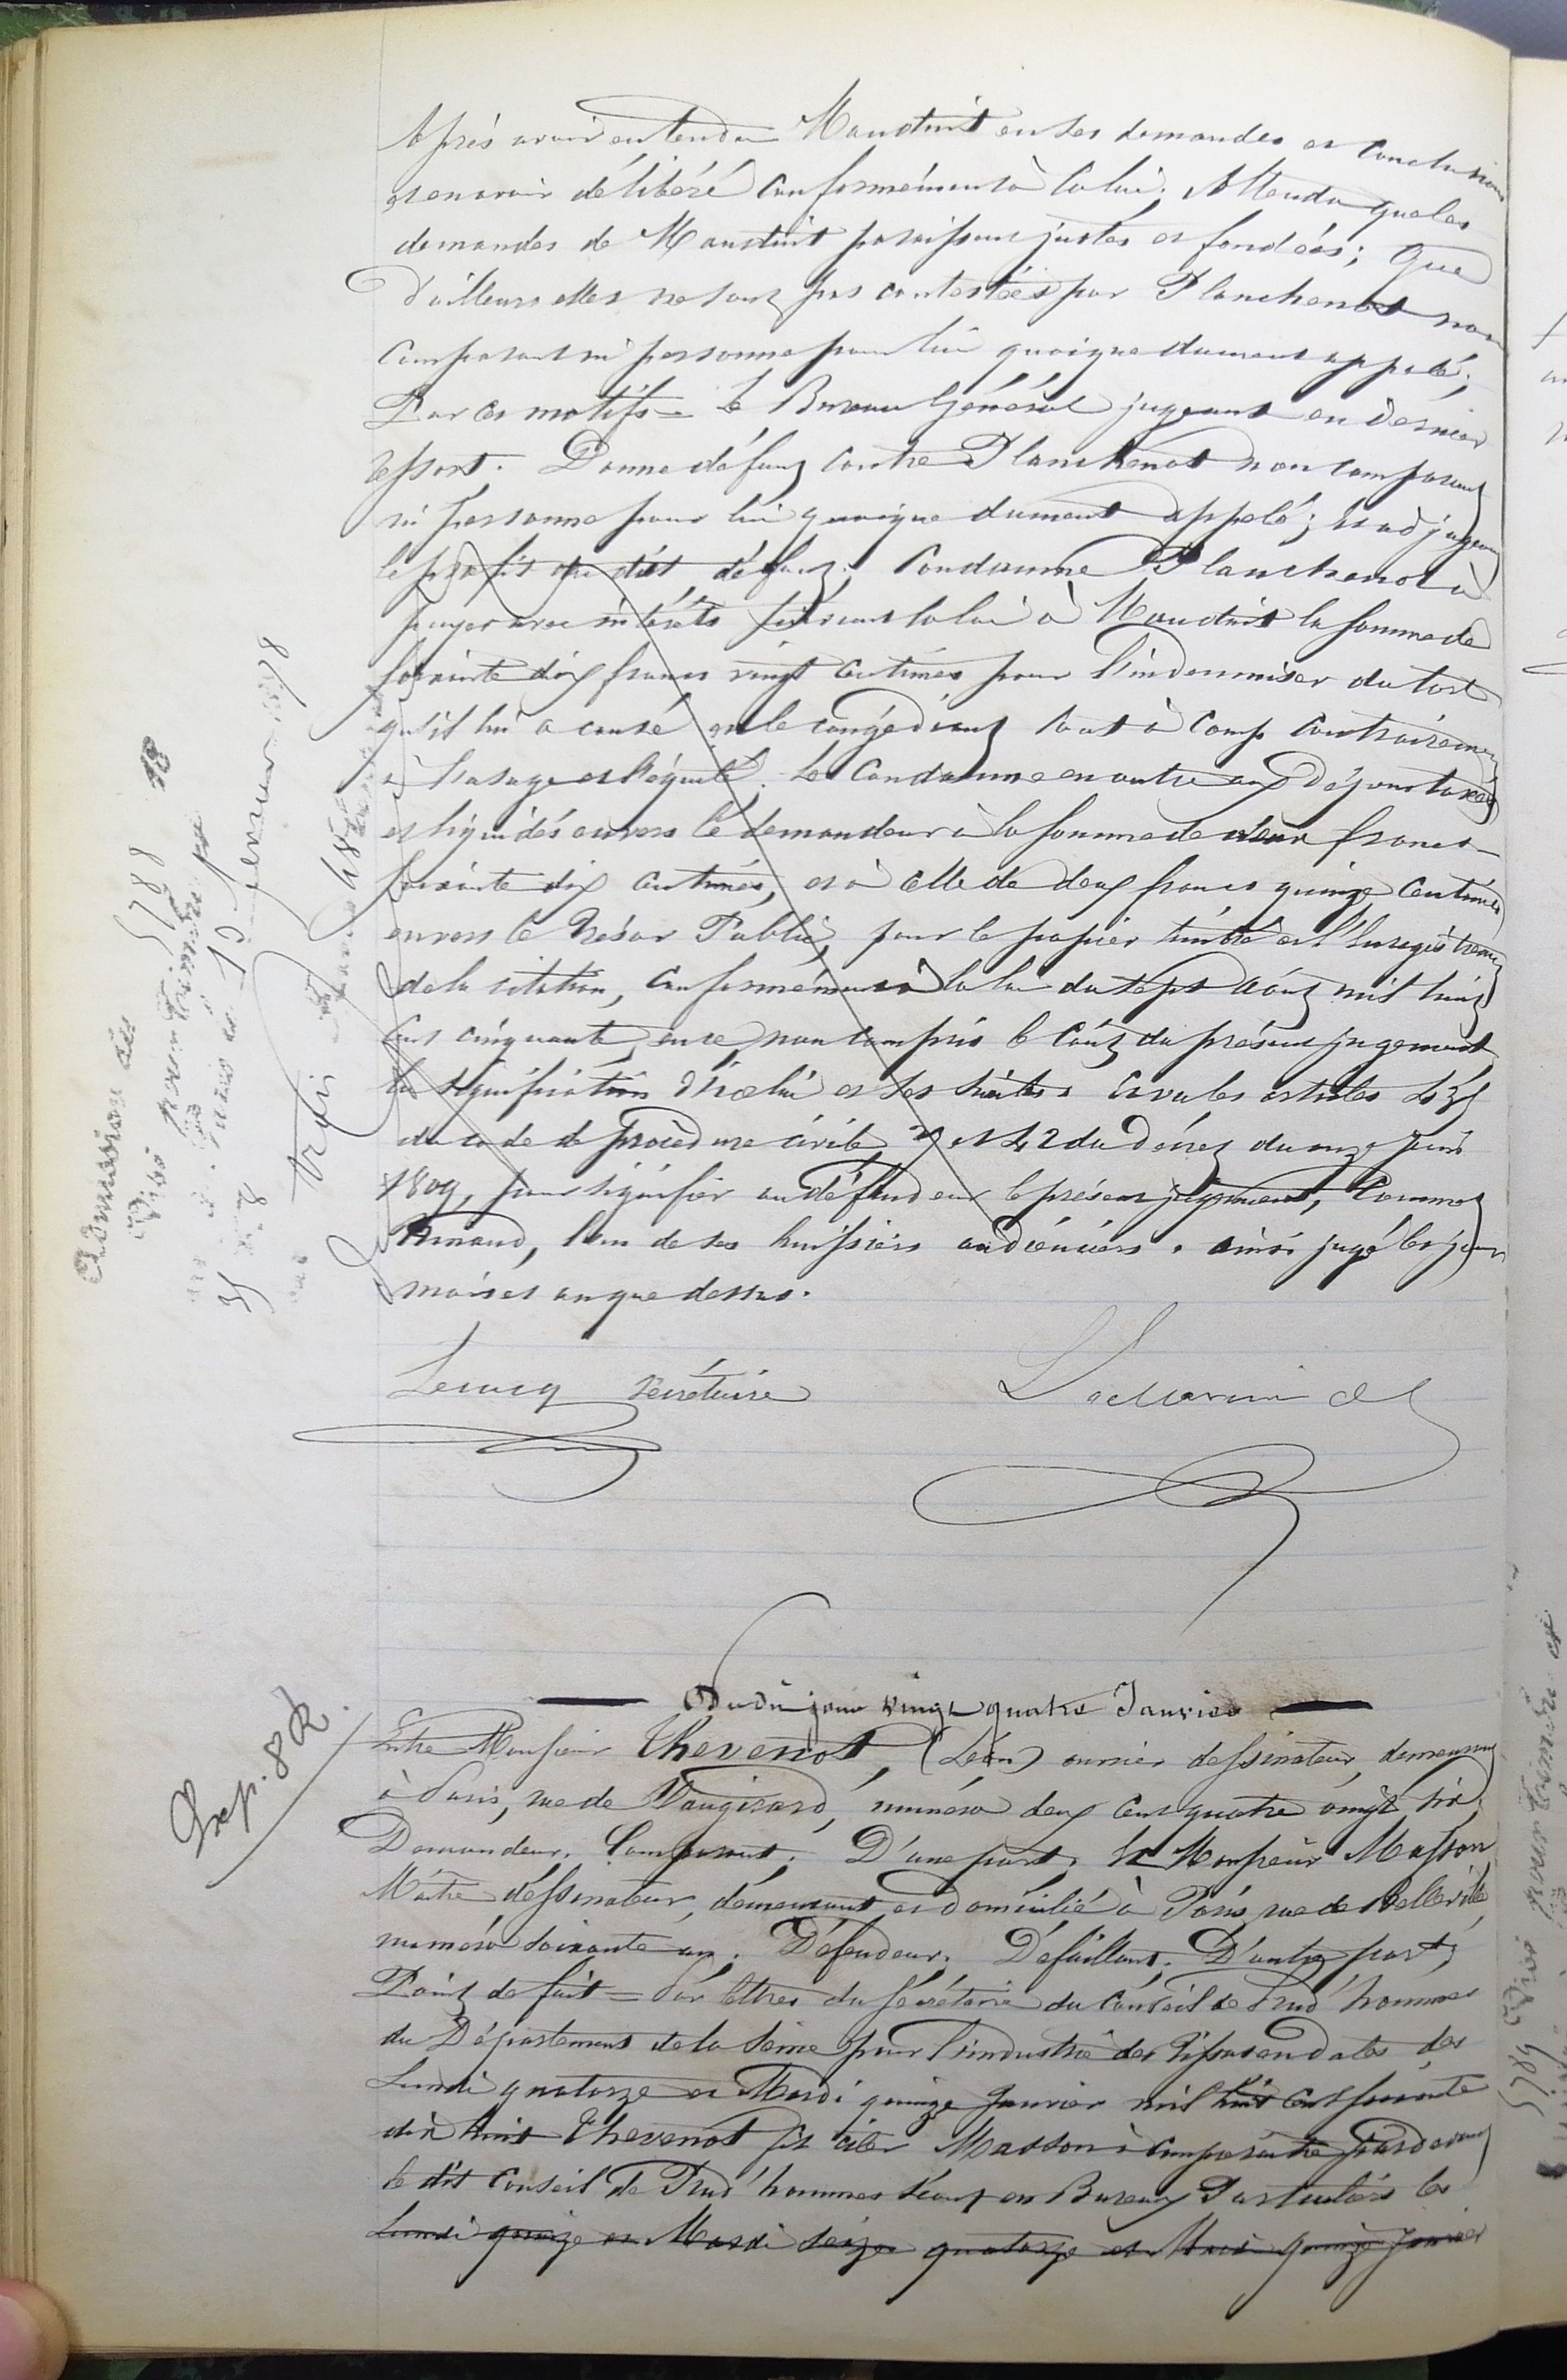 Après avoir entendu Mauduit en ses demandes et conclusions
et en avoir délibéré conformément à la loi; Attendu que les
demandes de Mauduit paraissent justes et fondées; que
d'ailleurs elles ne sont pas contestées par Planchenot non
comparant ni personne pour lui quoique dument appelé;
Par ces motifs = Le Bureau Général jugeant en dernier
ressort. Donne défaut contre Planchenot non comparant
ni personne pour lui quoique dument appelé; et adjugeant
le profit du dit défaut; Condamne Planchenot à
payer avec intérêts suivant la loi à Mauduit la somme de
soixante dix francs vingt centimes pour l'indemniser du tort
qu'il lui a causé en le congédiant tout à coup contrairement
à l'usage et l'équité. Le condamne en outre aux dépens taxés
et liquidés envers le demandeur à la somme de francs
soixante dix centimes, et à celle de deux francs quinze centimes
envers le Trésor Public, pour le papier timbré et l'enregistrement
de la citation, conformément à la loi du sept Août mil huit
cent cinquante, en ce, non compris le coût du présent jugement
la signification d'icelui et ses suites. Et vu les articles 435
du code de procédure civile 27 et 42 du décret du onze juin
1809, pour signifier au défendeur le présent jugement, Commet
l'un de ses huissiers audienciers. ainsi jugé les jour
mois et an que dessus.
Lecucq secrétaire
Du dit jour vingt quatre Janvier
Exp. 8 R.
Entre Monsieur Thevenot, (Léon) ouvrier dessinateur, demeurant
à Paris, rue de Vaugirard, numéro deux cent quatre vingt six
Demandeur. Comparant. D'une part. Et Monsieur Masson
Maître dessinateur, demeurant et domicilié à Paris, rue de Belleville,
numéro soixante un. Défendeur. Défaillant. D'autre part;
Point de fait = Par lettres du secrétaire du Conseil de Prud'hommes
du Département de la Seine pour l'industrie des Tissus en dates des
Lundi quatorze et Mardi quinze Janvier mil huit cent soixante
dix huit Thevenot fit citer Masson à comparaître pardevant
le dit Conseil de Prud'hommes séant en Bureaux Particuliers les
Lundi quinze et Mardi seize quatorze et Mardi quinze janvier